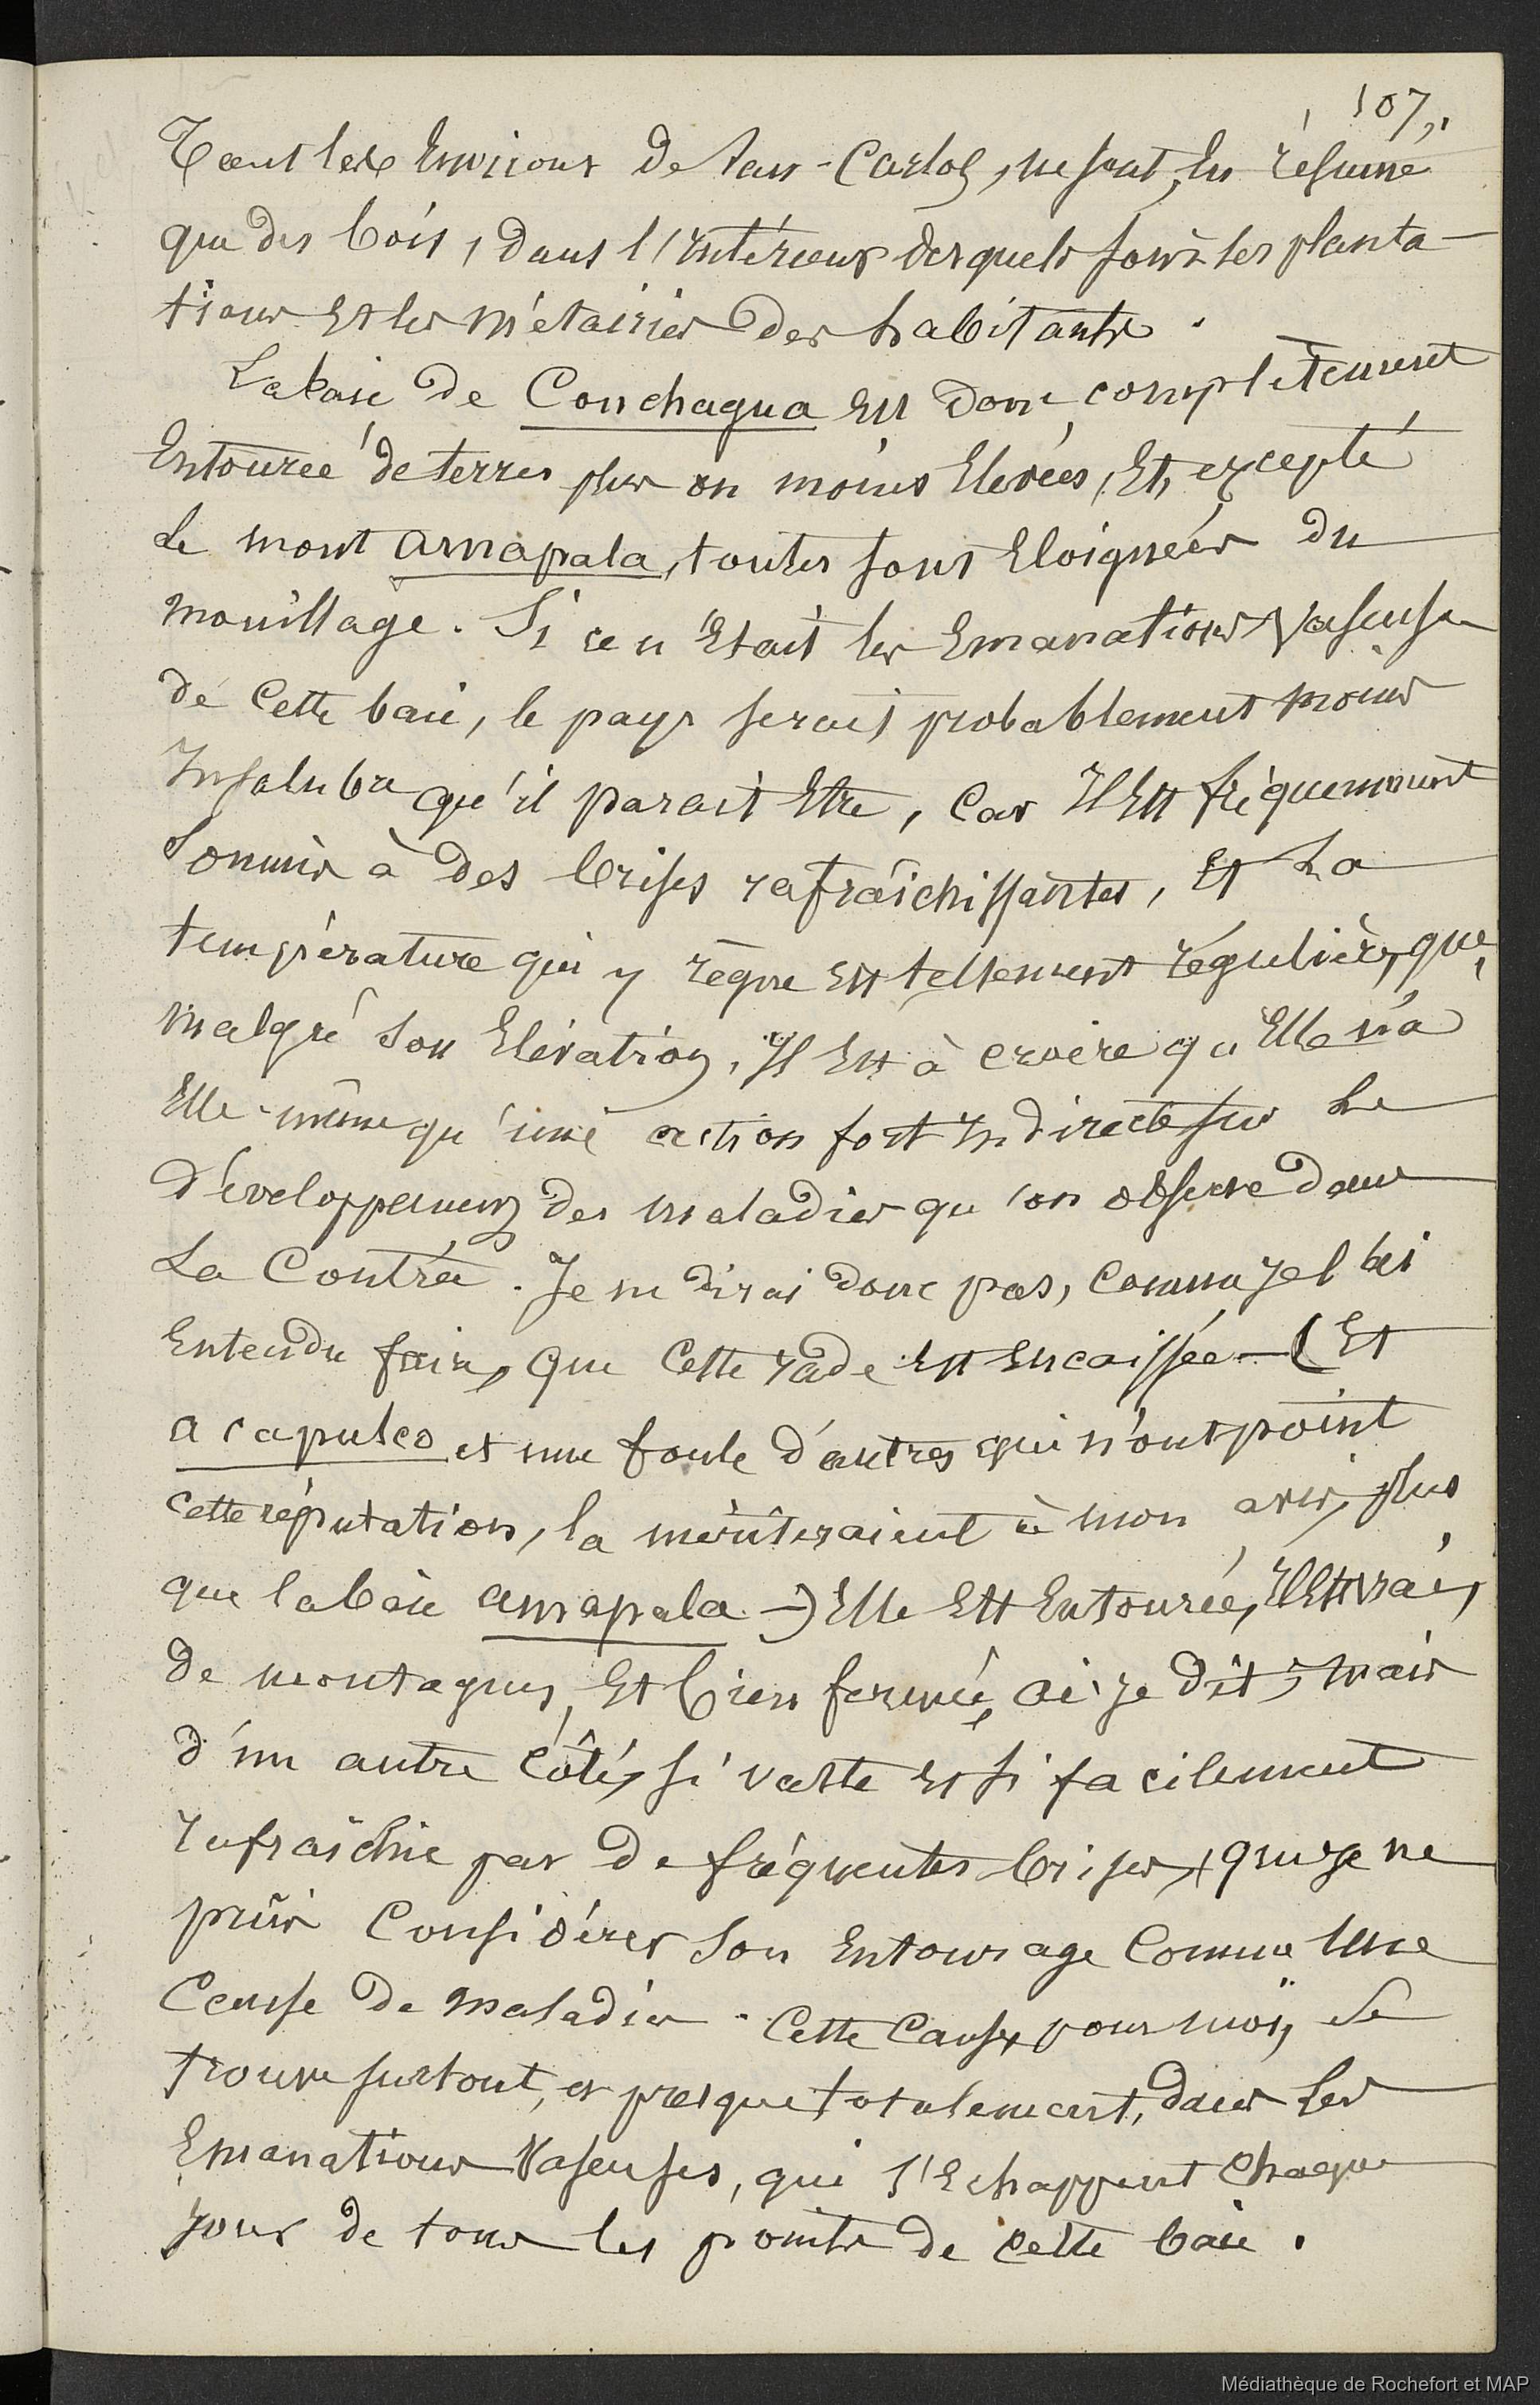 107,,
Tout les Environs de San-Carlos, ne sont, En résumé
que des bois, dans l'intérieur desquels sont les planta-
tions Et les Métairies des habitants.
La baie de Conchagua Est Donc complètement
Entourée de terres plus ou moins Elevées, Et, excepté
Le mont amapala, toutes sont Eloignées du
mouillage. Si ce n'Etait les Emanations Vaseuses
de cette baie, le pays serait probablement moins
Insalubre qu'il parait Etre, Car Il Est fréquemment
Soumis à des brises rafraîchissantes, Et La
température qui y règne Est tellement régulière, que,
malgré son Elévation, Il Est à croire qu'Elle n'a
Elle-même qu'une action fort Indirecte sur Le
Développement des maladies qu'on observe dans
La Contrée. Je ne dirai donc pas, comme Je l'ai
Entendu faire, que cette rade Est Encaissée - (Et
acapulco et une foule d'autres qui n'ont point
cette réputation, la mériteraient à mon avis, plus
que la baie amapala -) Elle Est Entourée, Il Est vrai,
de montagnes, Et bien fermée, ai-je dit; mais
d'un autre côté, si vaste Et si facilement
rafraîchie par de fréquentes brises, que je ne
puis Considérer Son Entourage Comme Une
Cause de maladies. Cette Cause, pour moi, Se
trouve surtout, et presque totalement, dans Les
Emanations Vaseuses, qui s'Echappent Chaque
Jour de tous les points de cette baie.
Médiathèque de Rochefort et MAP